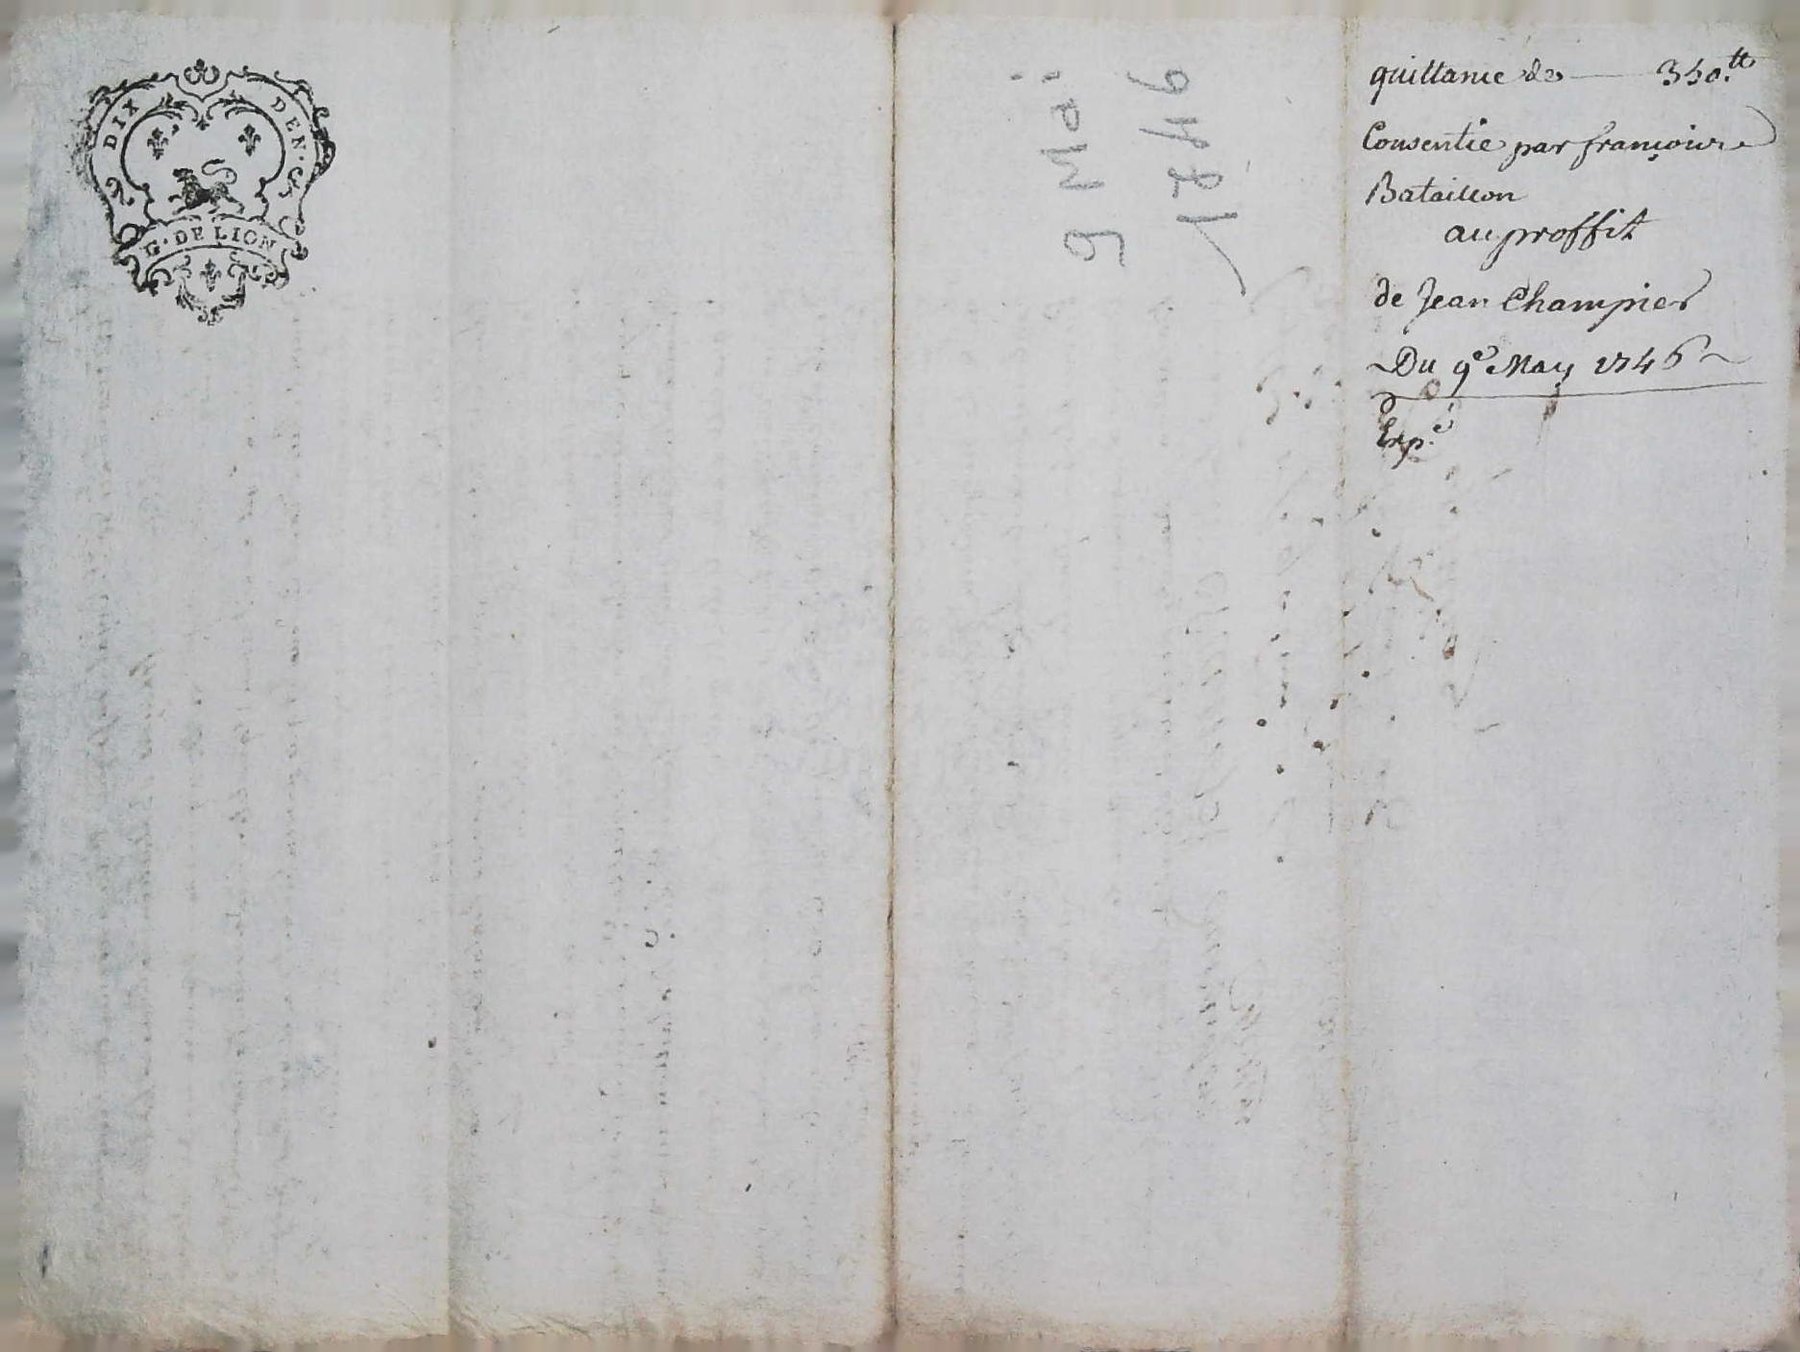 DIX DEN.
G. DE LION
9 Mai
1746
quittance de — 350.tt
Consentie par francoise
Bataillon
au proffit
de Jean Champier
Du 9e May 1746
Exp.é